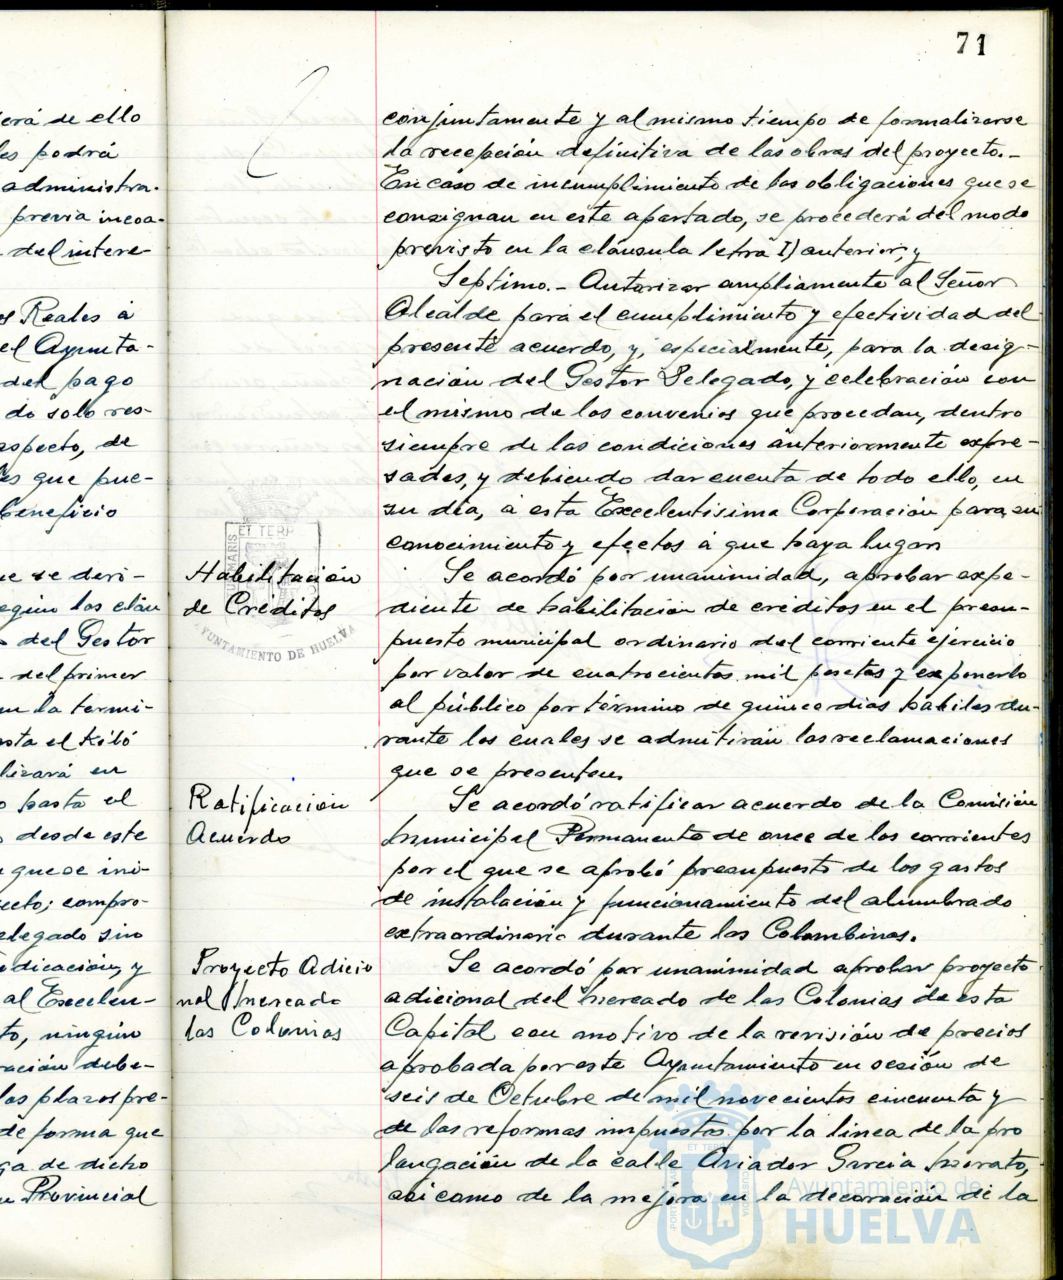 71
erá de ello
les podrá
administra-
previa incoa-
del intere-
os Reales à
el Ayunta-
del pago
do solo res-
especto, de
es que pue-
beneficio
ue se deri-
según las cláu
o del Gestor
del primer
en la termi-
asta el
lizará en
o hasta el
desde este
que se ini-
yecto; compro-
elegado sin
indicación, y
al Excelen-
to, ningún
ración debe-
los plazos pre-
de forma que
ga de dicho
Provincial
conjuntamente y al mismo tiempo de formalizarse
la recepción definitiva de las obras del proyecto.-
En caso de incumplimiento de las obligaciones que se
consignan en este apartado, se procederá del modo
previsto en la cláusula letra I) anterior; y
Septimo.- Autorizar ampliamente al Señor
Alcalde para el cumplimiento y efectividad del
presente acuerdo, y, especialmente, para la desig-
nación del Gestor Delegado, y celebración con
el mismo de los convenios que procedan, dentro
siempre de las condiciones anteriormente expre-
sadas, y debiendo dar cuenta de todo ello, en
su día, à esta Excelentísima Corporación para su
conocimiento y efectos à que haya lugar.
Habilitación
de Créditos
Se acordó por unanimidad, aprobar expe-
diente de habilitación de créditos en el presu-
puesto municipal ordinario del corriente ejercicio
por valor de cuatrocientas mil pesetas y exponerlo
al público por término de quince días hábiles du-
rante los cuales se admitirán las reclamaciones
que se presenten.
Ratificación
Acuerdo
Se acordó ratificar acuerdo de la Comisión
Municipal Permanente de once de los corrientes
por el que se aprobó presupuesto de los gastos
de instalación y funcionamiento del alumbrado
extraordinario durante las Colombinas.
Proyecto Adicio
nal Mercado
las Colonias
Se acordó por unanimidad aprobar proyecto
adicional del Mercado de las Colonias de esta
Capital con motivo de la revisión de precios
aprobada por este Ayuntamiento en sesión de
seis de Octubre de mil novecientos cincuenta y
de las reformas impuestas por la línea de la pro
longación de la calle Aviador García Morato,
así como de la mejora en la decoración de la
ET TERR
AYUNTAMIENTO DE HUELVA
Ayuntamiento de
HUELVA